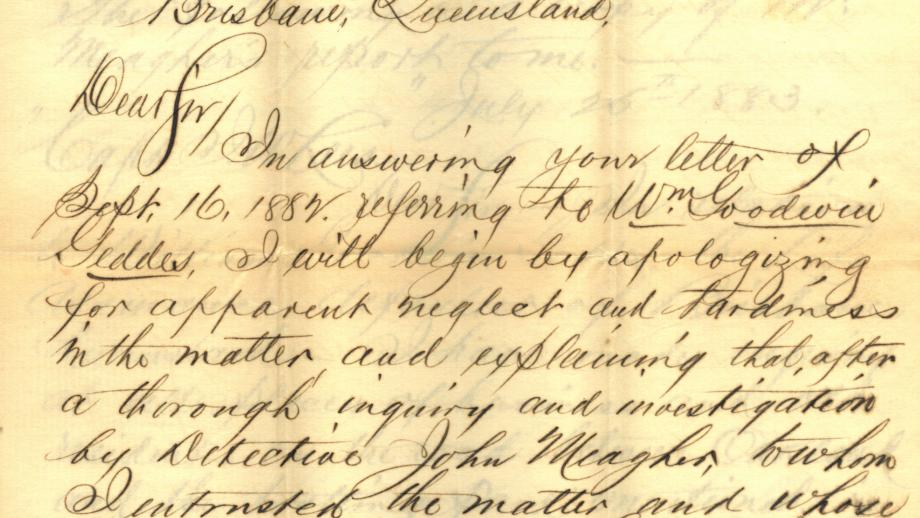 Brisbane, Queensland,
Dear Sir/
In answering your letter of
Sept. 16, 1882. referring to Wm. Goodwin
Geddes, I will begin by apologizing
for apparent neglect and tardiness
in the matter, and explaining that, after
a thorough inquiry and investigation
by Detective John Meagher, to whom
I entrusted the matter and whose